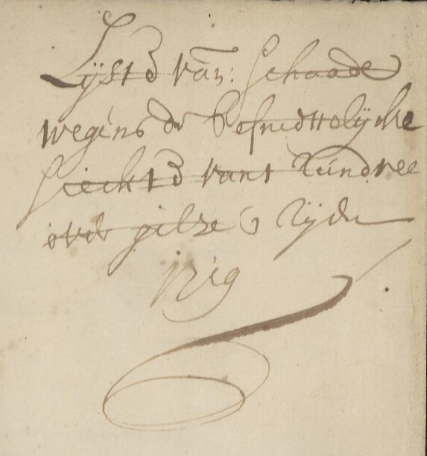 Lijste van: Schaade
wegens de besmettelijcke
Sieckte vant Rundvee
over gilze & Rijen
1719